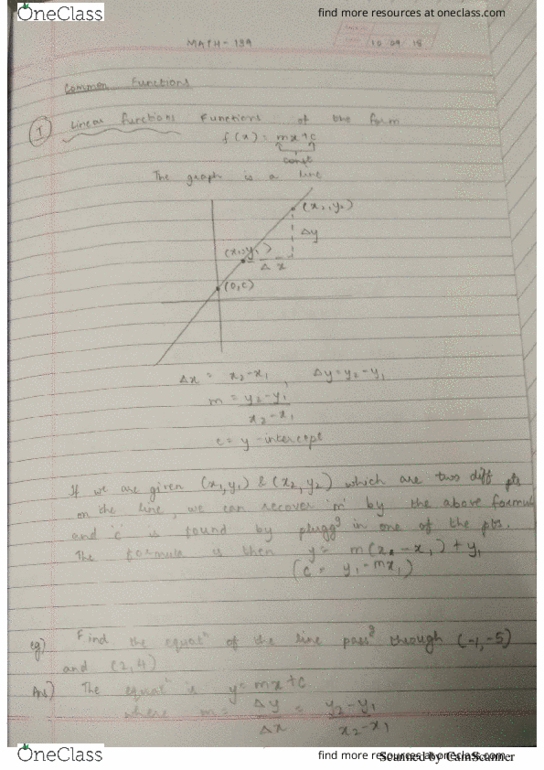 OneClass
find more resources at oneclass.com
MATH-139
10 09 18
Common Functions
I
Linear functions Functions of the form
f(x) = mx+c
const
The graph is a line
(x2, y2)
Δy
(x1, y1)
Δx
(0,c)
Δx = x2-x1, Δy = y2-y1
m = y2-y1
x2-x1
c = y-intercept
If we are given (x1,y1) & (x2,y2) which are two diff pts
on the line, we can recover 'm' by the above formula
and 'c' is found by plugg^g in one of the pts.
The formula is then y = m(x-x1) + y1
(c = y1-mx1)
eg) Find the equat^n of the line pass^g through (-1,-5)
and (2,4)
Ans) The equat^n is y=mx+c
where m = Δy = y2-y1
Δx x2-x1
OneClass
find more resources at oneclass.com
Scanned by CamScanner